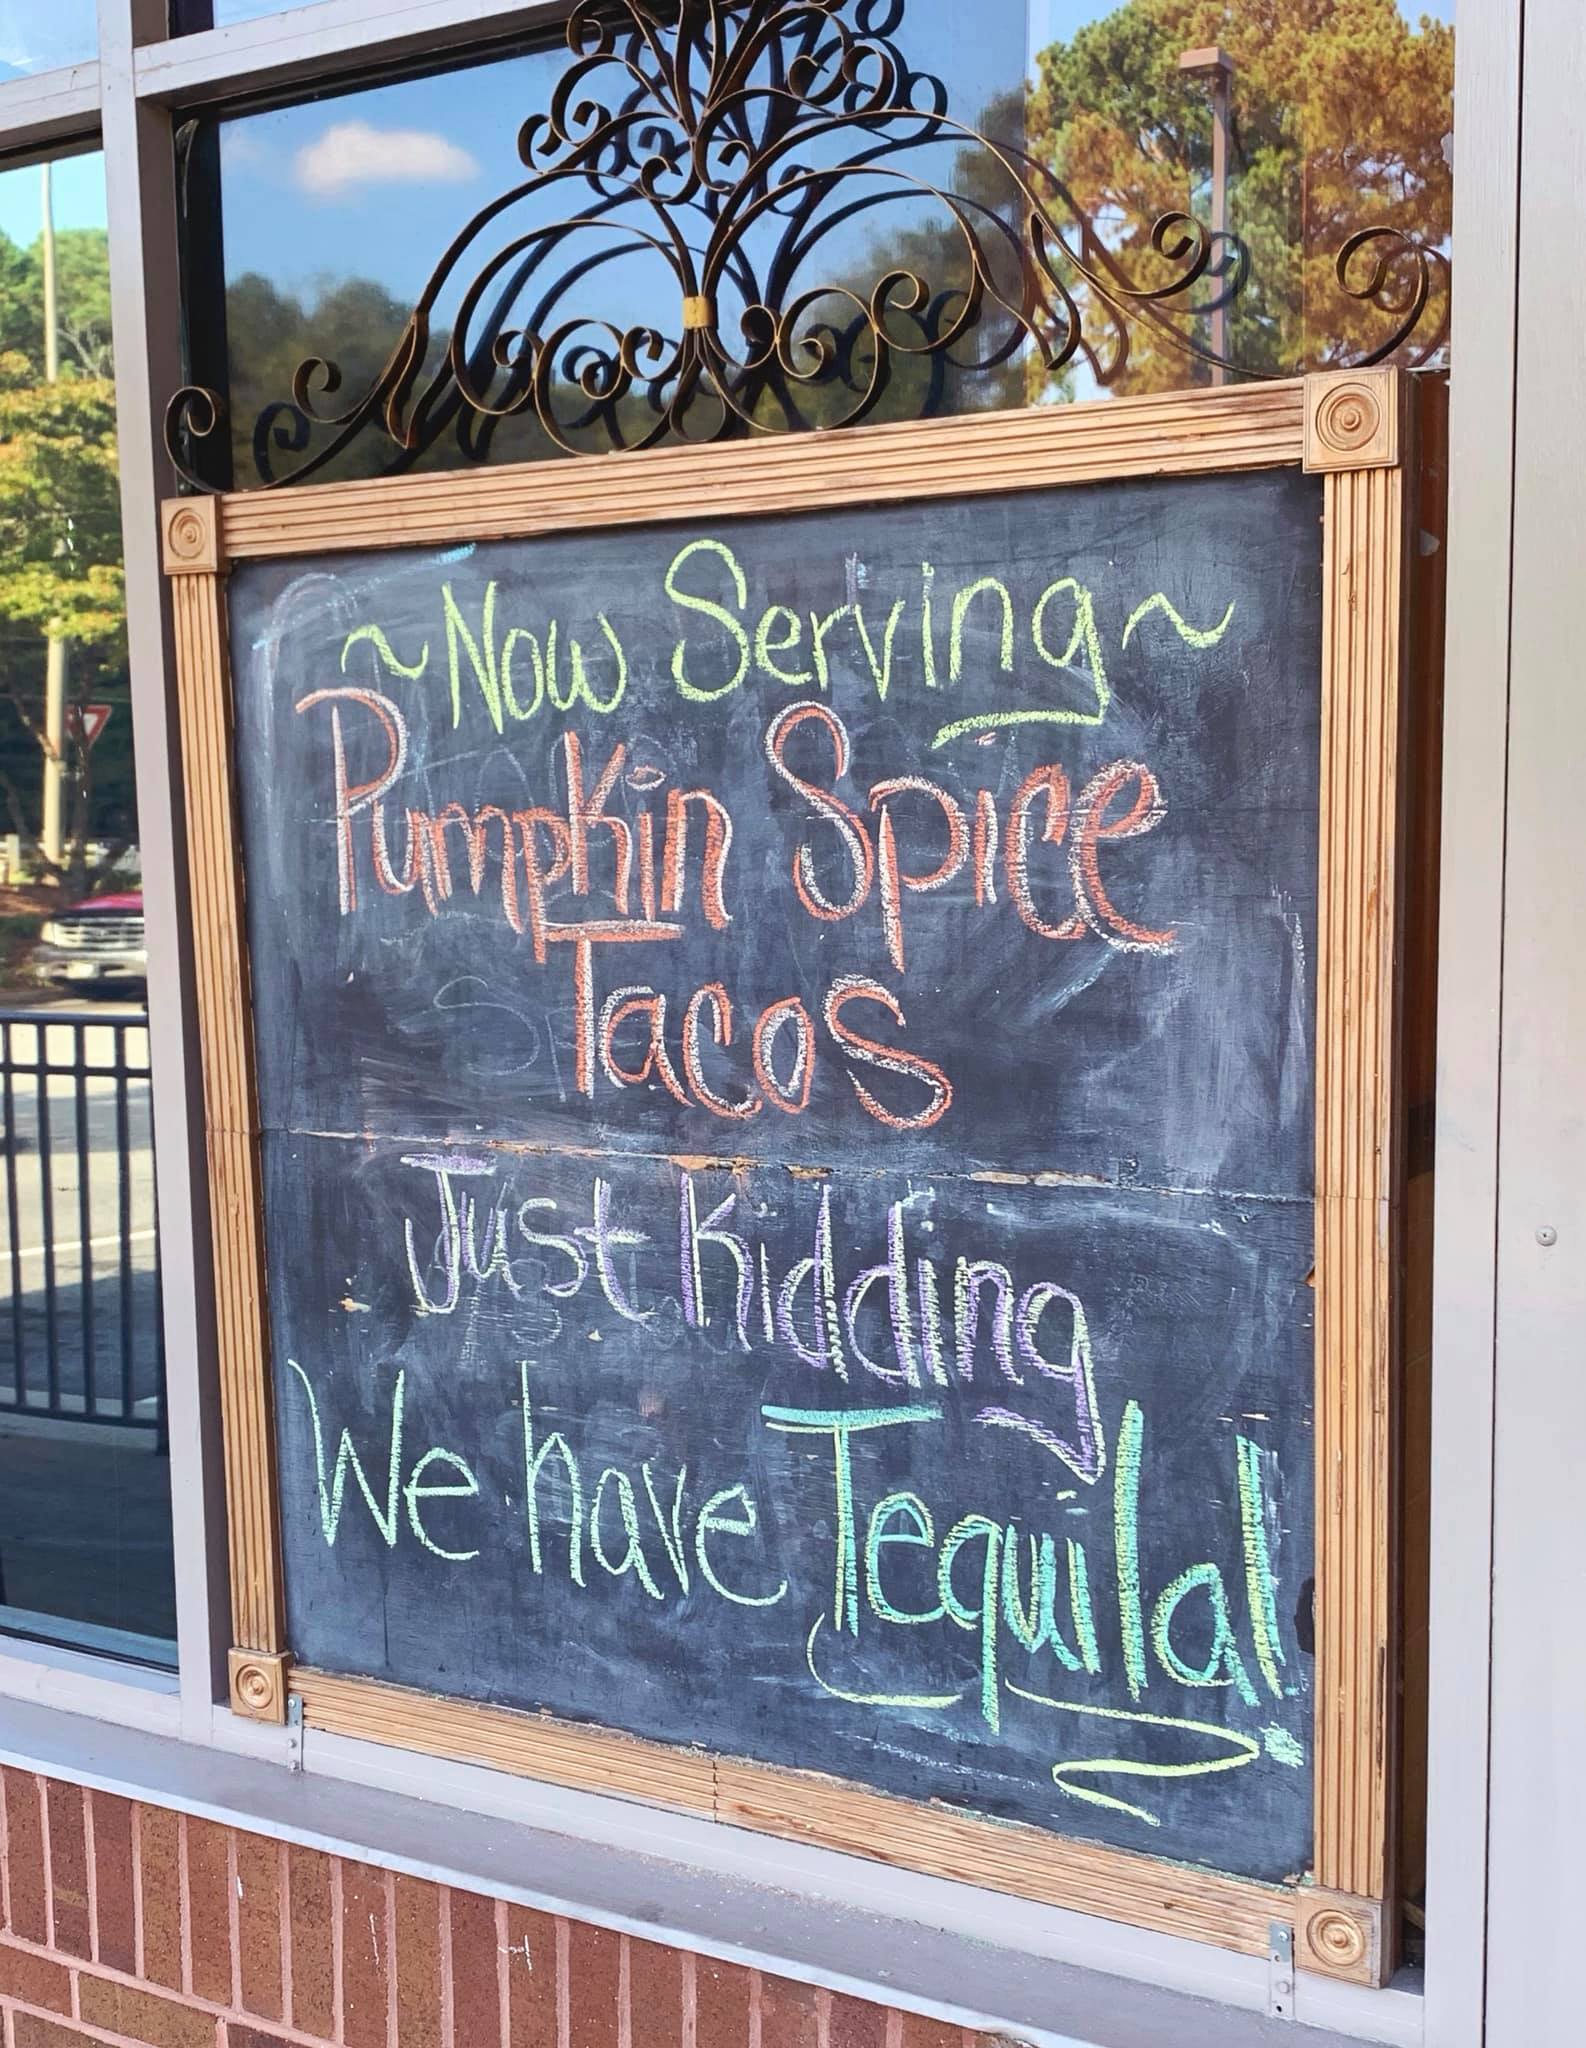 ~Now Serving~
Pumpkin Spice
Tacos
Just Kidding
We have Tequila!